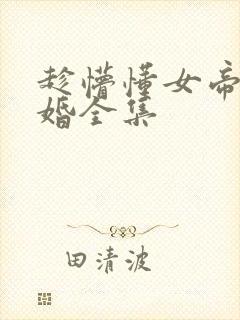 趁懵懂女帝
婚全集
田清波